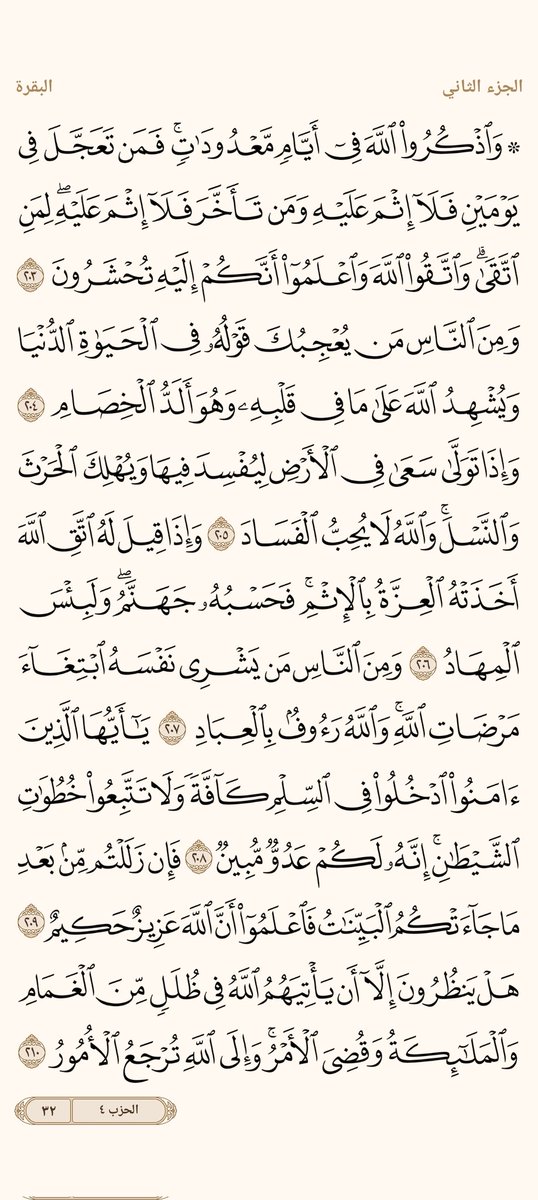 الجزء الثاني
البقرة
۞ وَٱذْكُرُوا۟ ٱللَّهَ فِىٓ أَيَّامٍ مَّعْدُودَٰتٍ ۚ فَمَن تَعَجَّلَ فِى
يَوْمَيْنِ فَلَآ إِثْمَ عَلَيْهِ وَمَن تَأَخَّرَ فَلَآ إِثْمَ عَلَيْهِ ۖ لِمَنِ
ٱتَّقَىٰ ۗ وَٱتَّقُوا۟ ٱللَّهَ وَٱعْلَمُوٓا۟ أَنَّكُمْ إِلَيْهِ تُحْشَرُونَ ٢٠٣
وَمِنَ ٱلنَّاسِ مَن يُعْجِبُكَ قَوْلُهُۥ فِى ٱلْحَيَوٰةِ ٱلدُّنْيَا
وَيُشْهِدُ ٱللَّهَ عَلَىٰ مَا فِى قَلْبِهِۦ وَهُوَ أَلَدُّ ٱلْخِصَامِ ٢٠٤
وَإِذَا تَوَلَّىٰ سَعَىٰ فِى ٱلْأَرْضِ لِيُفْسِدَ فِيهَا وَيُهْلِكَ ٱلْحَرْثَ
وَٱلنَّسْلَ ۗ وَٱللَّهُ لَا يُحِبُّ ٱلْفَسَادَ ٢٠٥ وَإِذَا قِيلَ لَهُ ٱتَّقِ ٱللَّهَ
أَخَذَتْهُ ٱلْعِزَّةُ بِٱلْإِثْمِ ۚ فَحَسْبُهُۥ جَهَنَّمُ ۖ وَلَبِئْسَ
ٱلْمِهَادُ ٢٠٦ وَمِنَ ٱلنَّاسِ مَن يَشْرِى نَفْسَهُ ٱبْتِغَآءَ
مَرْضَاتِ ٱللَّهِ ۚ وَٱللَّهُ رَءُوفٌۢ بِٱلْعِبَادِ ٢٠٧ يَٰٓأَيُّهَا ٱلَّذِينَ
ءَامَنُوا۟ ٱدْخُلُوا۟ فِى ٱلسِّلْمِ كَآفَّةً وَلَا تَتَّبِعُوا۟ خُطُوَٰتِ
ٱلشَّيْطَٰنِ ۚ إِنَّهُۥ لَكُمْ عَدُوٌّ مُّبِينٌ ٢٠٨ فَإِن زَلَلْتُم مِّنۢ بَعْدِ
مَا جَآءَتْكُمُ ٱلْبَيِّنَٰتُ فَٱعْلَمُوٓا۟ أَنَّ ٱللَّهَ عَزِيزٌ حَكِيمٌ ٢٠٩
هَلْ يَنظُرُونَ إِلَّآ أَن يَأْتِيَهُمُ ٱللَّهُ فِى ظُلَلٍ مِّنَ ٱلْغَمَامِ
وَٱلْمَلَٰٓئِكَةُ وَقُضِىَ ٱلْأَمْرُ ۚ وَإِلَى ٱللَّهِ تُرْجَعُ ٱلْأُمُورُ ٢١٠
الحزب ٤
٣٢